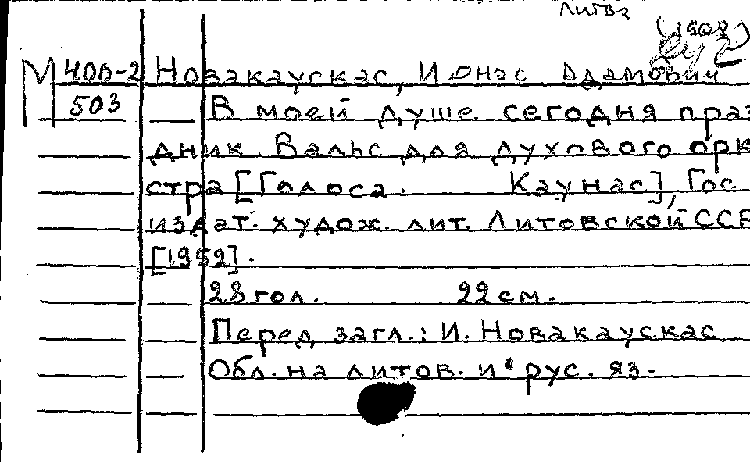 Литва
(1502)
М 400-2 Новакаускас, Ионас Адамович
503 В моей душе сегодня праз
дник. Вальс для духового орке
стра [Голоса. Каунас], Гос.
издат. худож. лит. Литовской ССР
[1952].
28 гол. 22 см.
Перед загл.: И. Новакаускас
Обл. на литов. и рус. яз.